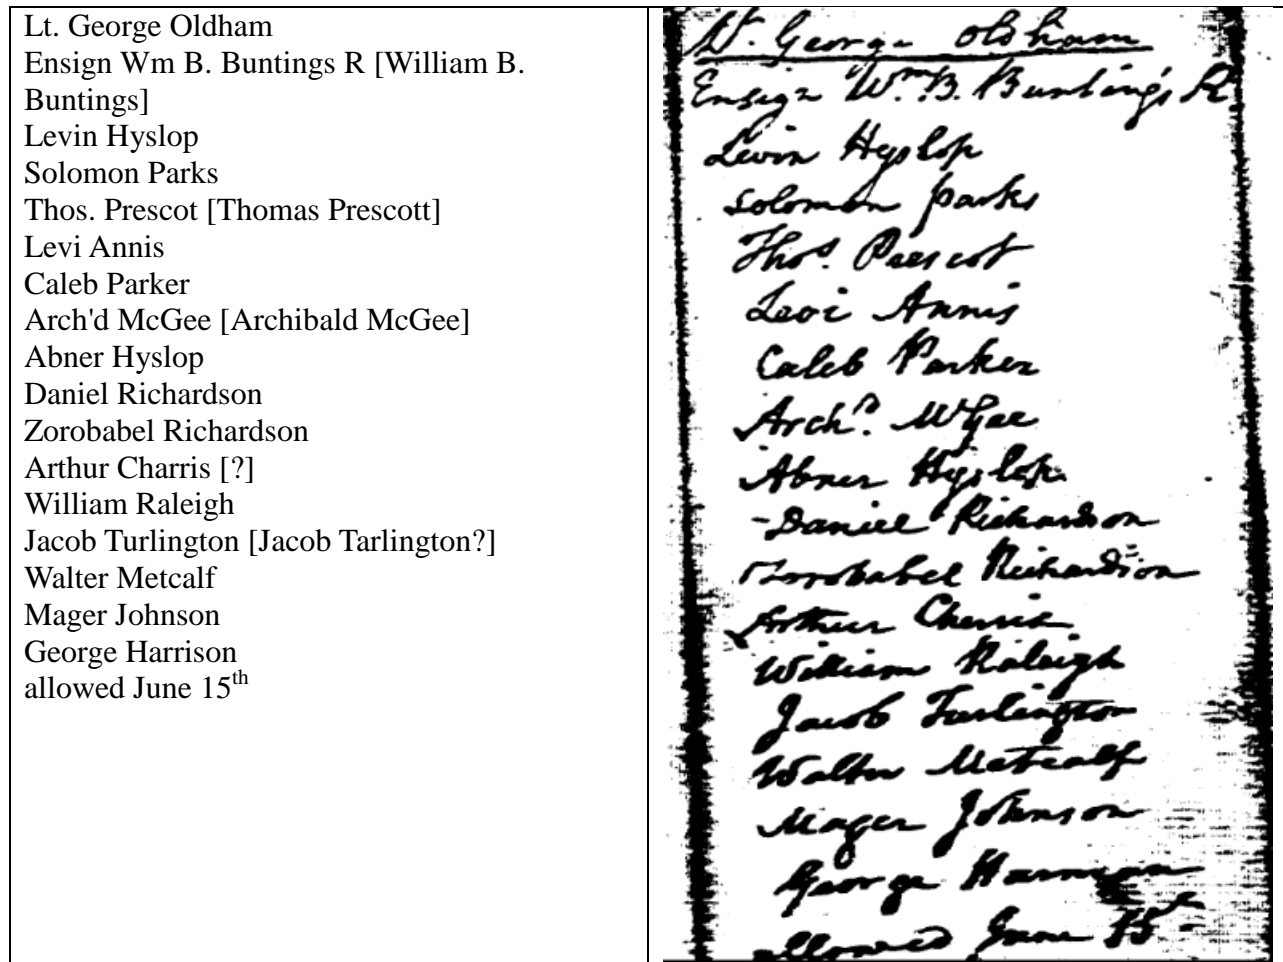 Lt. George Oldham
Ensign Wm B. Buntings R [William B.
Buntings]
Levin Hyslop
Solomon Parks
Thos. Prescot [Thomas Prescott]
Levi Annis
Caleb Parker
Arch'd McGee [Archibald McGee]
Abner Hyslop
Daniel Richardson
Zorobabel Richardson
Arthur Charris [?]
William Raleigh
Jacob Turlington [Jacob Tarlington?]
Walter Metcalf
Mager Johnson
George Harrison
allowed June 15th
Lt. George Oldham
Ensign Wm. B. Bunting's R
Levin Hyslop
Solomon Parks
Thos. Prescot
Levi Annis
Caleb Parker
Archd. McGee
Abner Hyslop
Daniel Richardson
Zorobabel Richardson
Arthur
William Raleigh
Jacob Turlington
Walter Metcalf
Mager Johnson
George
allowed June 15th